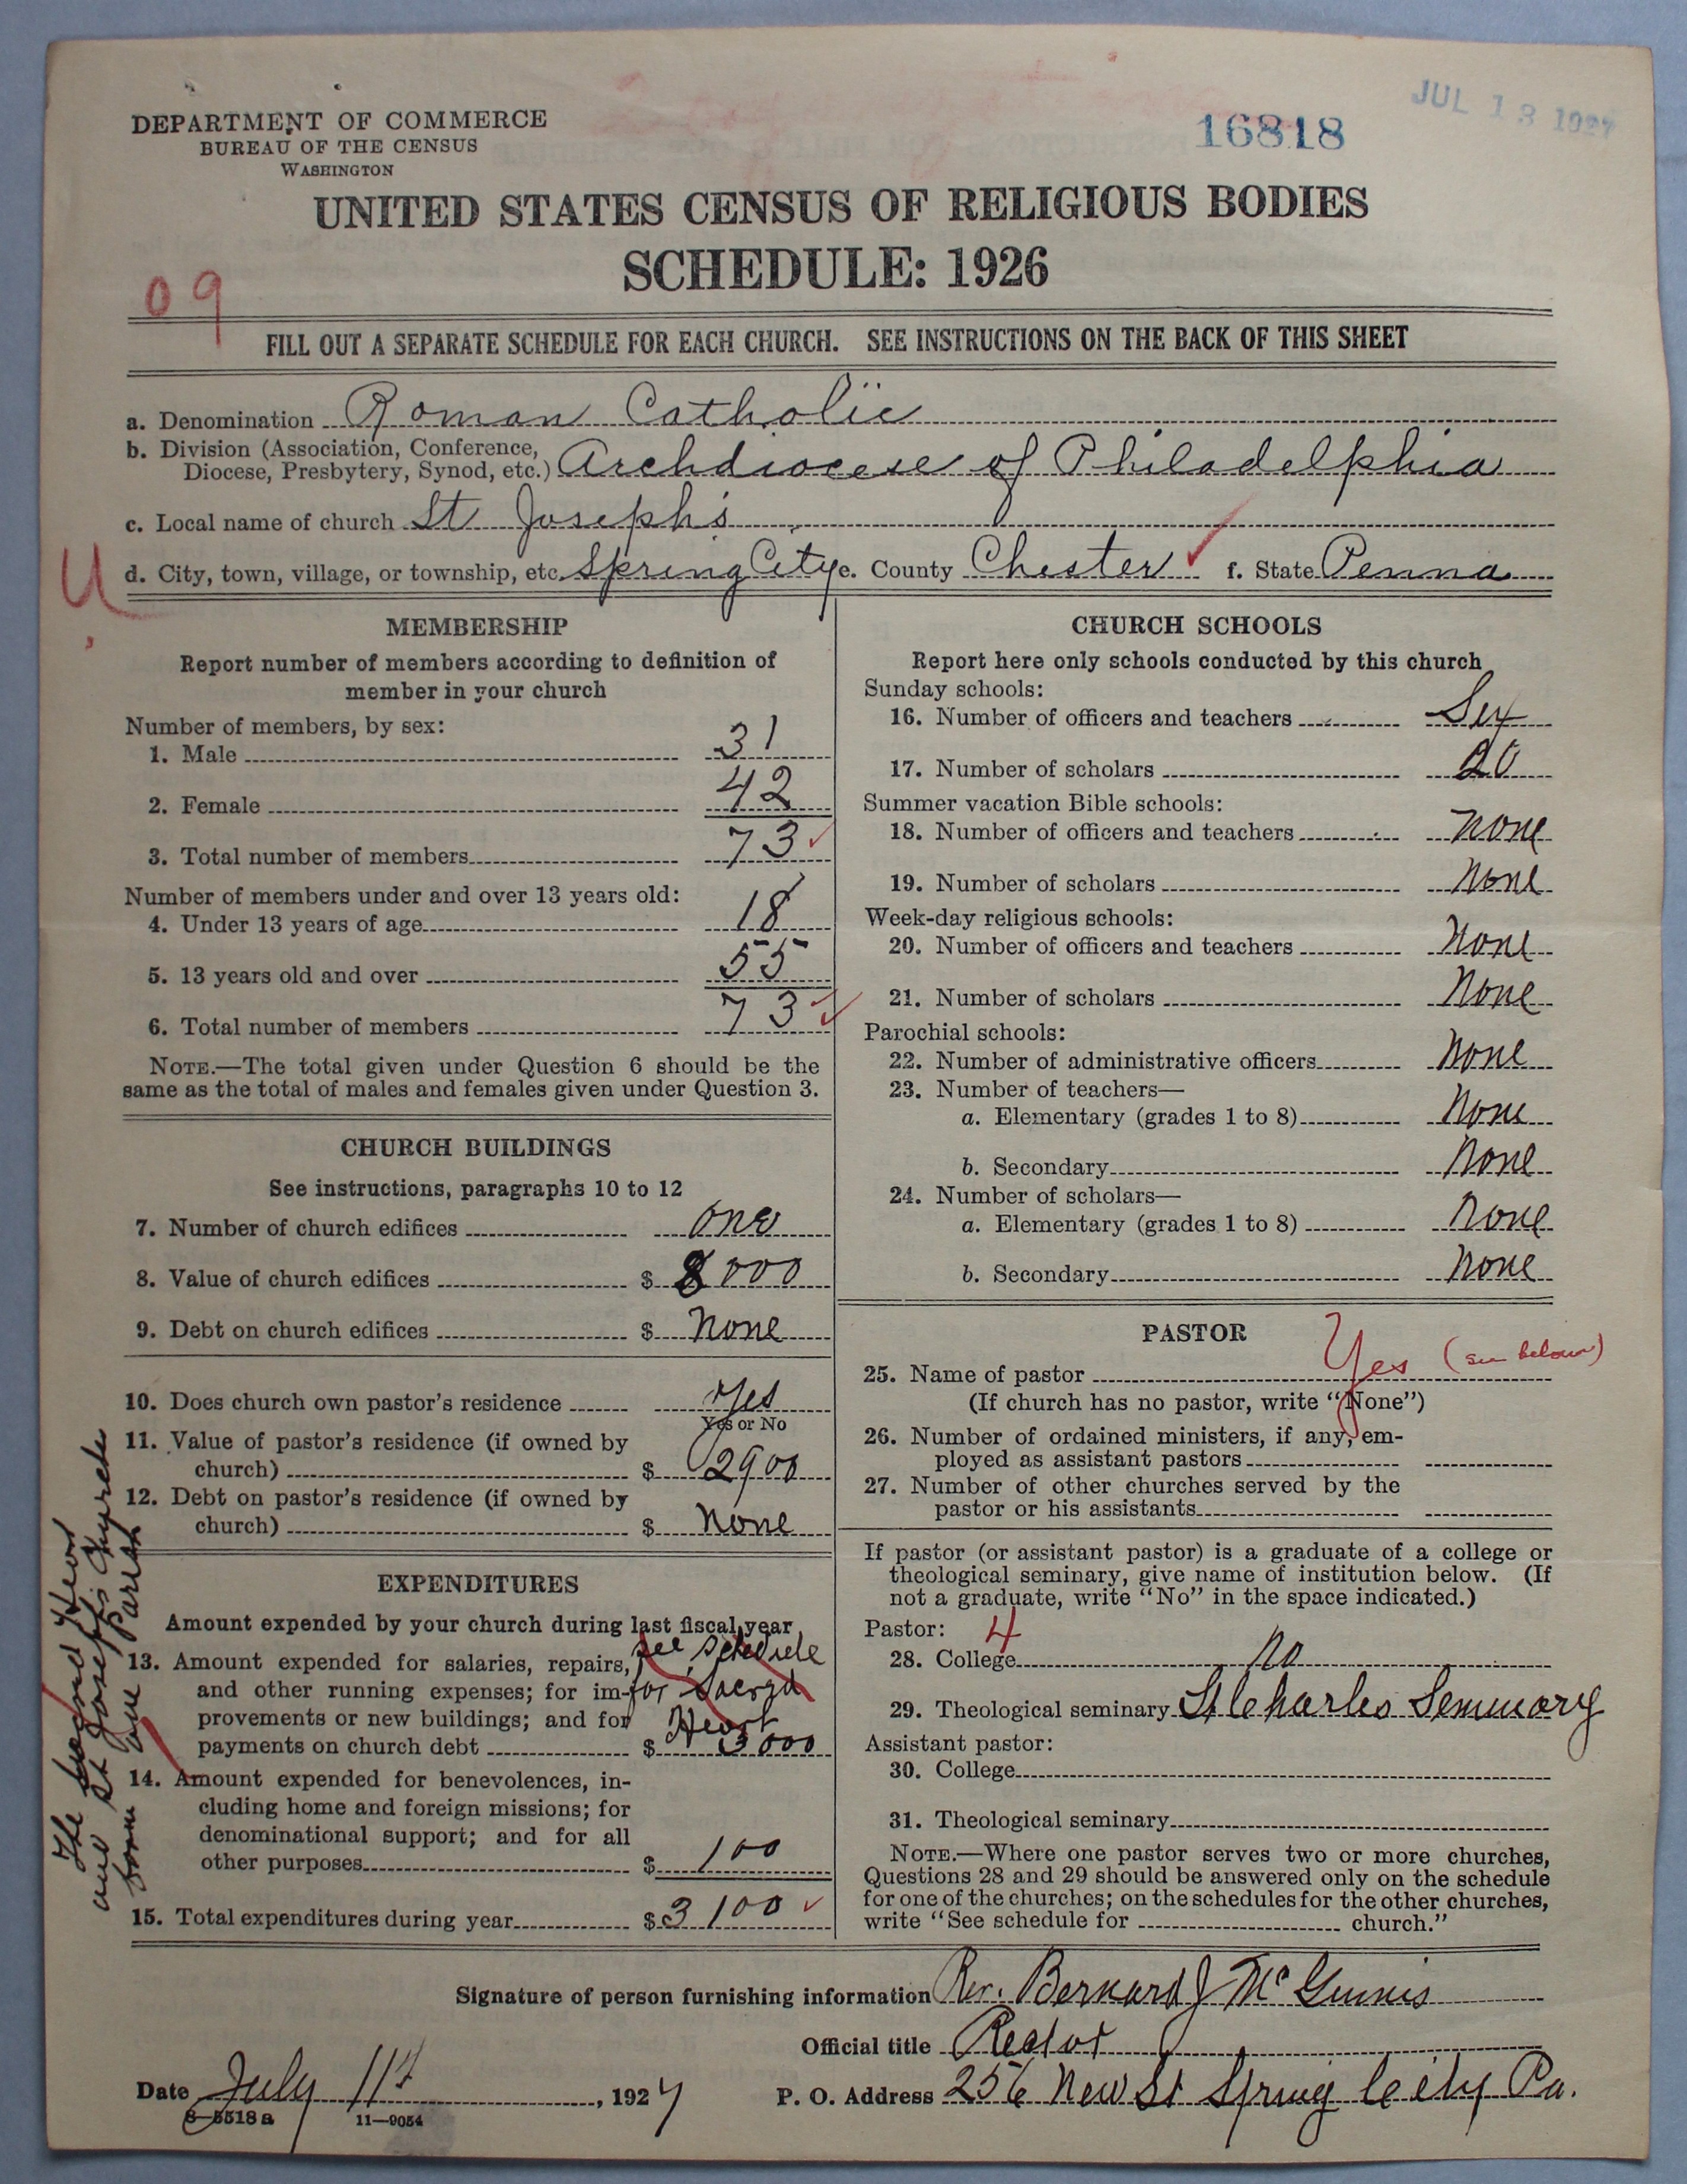 JUL 13 1927
16818
DEPARTMENT OF COMMERCE
BUREAU OF THE CENSUS
WASHINGTON
UNITED STATES CENSUS OF RELIGIOUS BODIES
SCHEDULE: 1926
09
FILL OUT A SEPARATE SCHEDULE FOR EACH CHURCH. SEE INSTRUCTIONS ON THE BACK OF THIS SHEET
a. Denomination Roman Catholic
b. Division (Association, Conference,
Diocese, Presbytery, Synod, etc.) Archdiocese of Philadelphia
c. Local name of church St Joseph's
U
d. City, town, village, or township, etc. Spring City e. County Chester ✓ f. State Penna
MEMBERSHIP
Report number of members according to definition of
member in your church
Number of members, by sex:
1. Male 31
2. Female 42
3. Total number of members 73 ✓
Number of members under and over 13 years old:
4. Under 13 years of age 18
5. 13 years old and over 55
6. Total number of members 73 ✓
NOTE.—The total given under Question 6 should be the
same as the total of males and females given under Question 3.
CHURCH BUILDINGS
See instructions, paragraphs 10 to 12
7. Number of church edifices One
8. Value of church edifices $ 8000
9. Debt on church edifices $ None
10. Does church own pastor's residence Yes
Yes or No
11. Value of pastor's residence (if owned by
church) $ 2900
12. Debt on pastor's residence (if owned by
church) $ None
EXPENDITURES
Amount expended by your church during last fiscal year
13. Amount expended for salaries, repairs, See Schedule
and other running expenses; for im- for Sacred
provements or new buildings; and for Heart
payments on church debt $ 3000
14. Amount expended for benevolences, in-
cluding home and foreign missions; for
denominational support; and for all
other purposes $ 100
15. Total expenditures during year $ 3100 ✓
The Sacred Heart
and St Joseph's Church
form one Parish
CHURCH SCHOOLS
Report here only schools conducted by this church
Sunday schools:
16. Number of officers and teachers Six
17. Number of scholars 20
Summer vacation Bible schools:
18. Number of officers and teachers None
19. Number of scholars None
Week-day religious schools:
20. Number of officers and teachers None
21. Number of scholars None
Parochial schools:
22. Number of administrative officers None
23. Number of teachers—
a. Elementary (grades 1 to 8) None
b. Secondary None
24. Number of scholars—
a. Elementary (grades 1 to 8) None
b. Secondary None
PASTOR
25. Name of pastor Yes (see below)
(If church has no pastor, write "None")
26. Number of ordained ministers, if any, em-
ployed as assistant pastors
27. Number of other churches served by the
pastor or his assistants
If pastor (or assistant pastor) is a graduate of a college or
theological seminary, give name of institution below. (If
not a graduate, write "No" in the space indicated.)
Pastor: 4
28. College No
29. Theological seminary St Charles Seminary
Assistant pastor:
30. College
31. Theological seminary
NOTE.—Where one pastor serves two or more churches,
Questions 28 and 29 should be answered only on the schedule
for one of the churches; on the schedules for the other churches,
write "See schedule for church."
Signature of person furnishing information Rev. Bernard J McGinnis
Official title Rector
Date July 11th, 1927 P. O. Address 256 New St Spring City Pa.
8—5518 a 11—9054